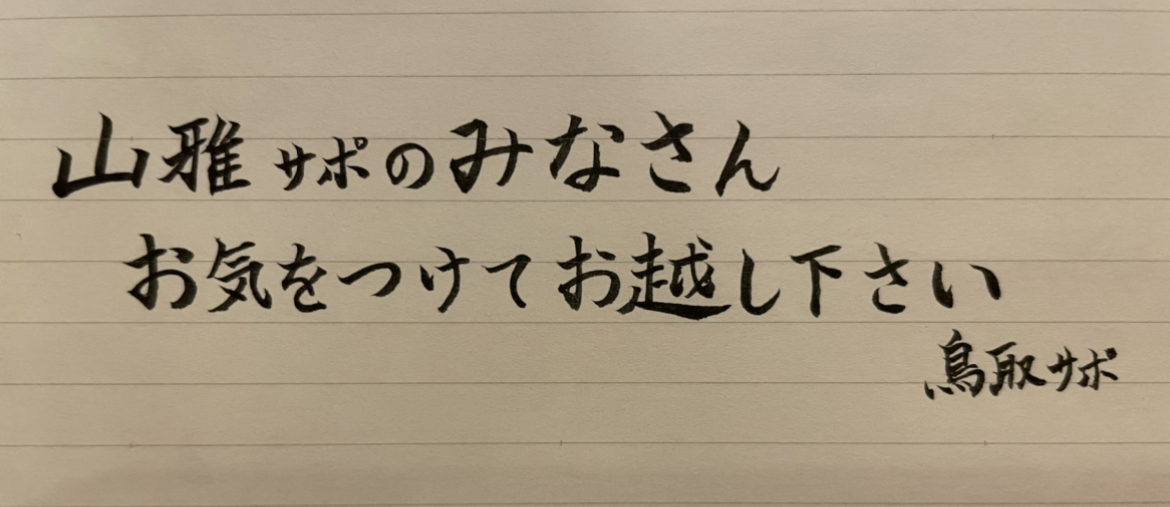 山雅サポのみなさん
お気をつけてお越し下さい
鳥取サポ